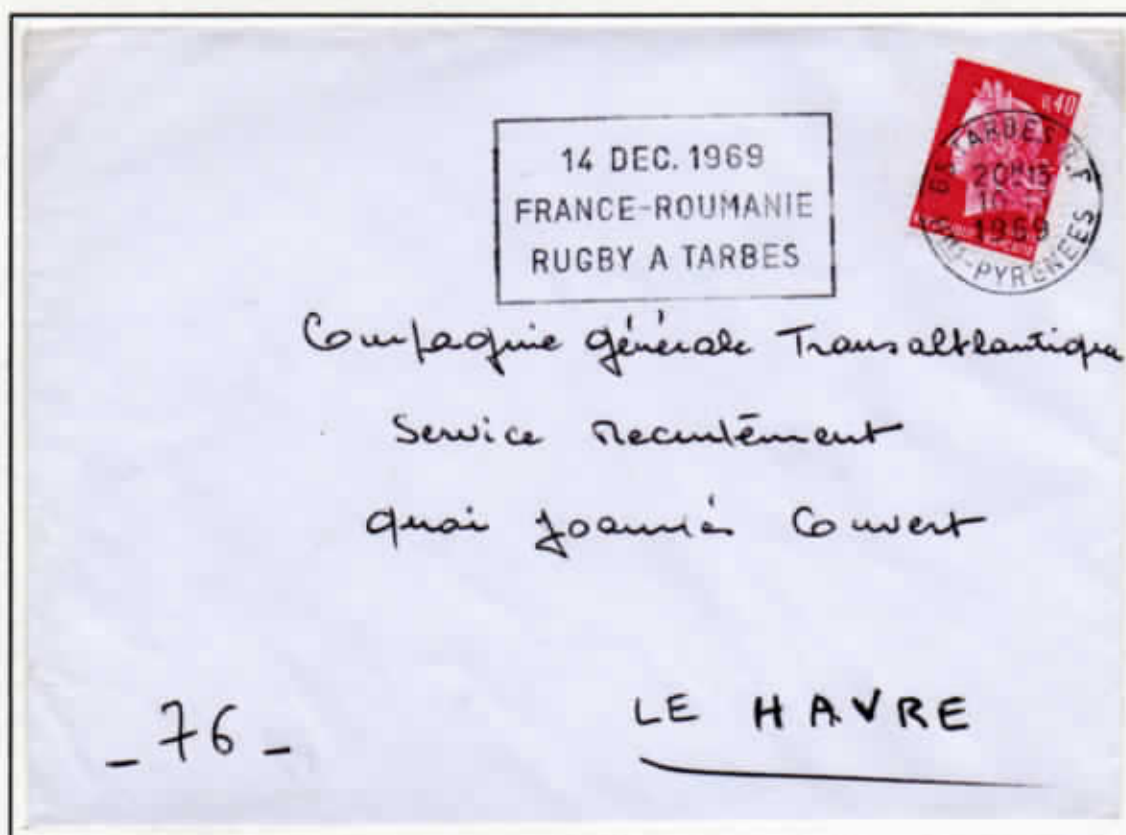 14 DEC. 1969
FRANCE-ROUMANIE
RUGBY A TARBES
0,40
65 TARBES R.P
20H15
10
1969
HTES-PYRENEES
Compagnie Générale Transaltlantique
Service Recrutément
quai Joannès Couvert
_ 76 _
LE HAVRE